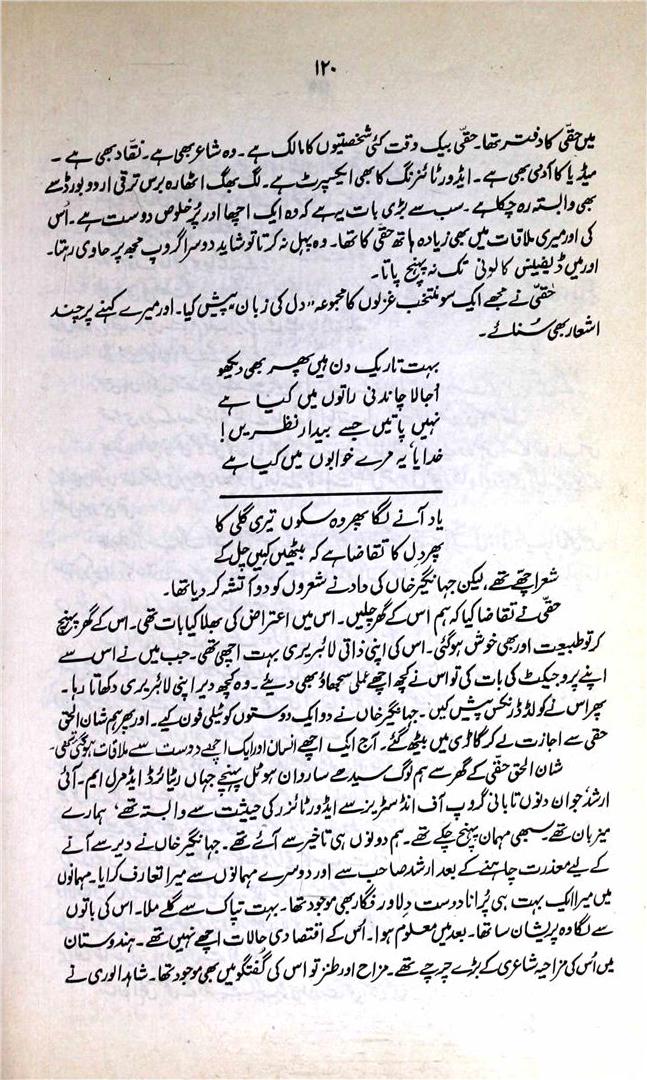 ۱۲۰
میں حقّی کا دفتر تھا۔ حقّی بیک وقت کئی شخصیتوں کا مالک ہے۔ وہ شاعر بھی ہے۔ نقّاد بھی ہے ۔
میڈیا کا آدمی بھی ہے ۔ ایڈورٹائزنگ کا بھی ایکسپرٹ ہے۔ لگ بھگ اٹھارہ برس ترقی اردو بورڈ سے
بھی وابستہ رہ چکا ہے ۔ سب سے بڑی بات یہ ہے کہ وہ ایک اچھا اور پُر خلوص دوست ہے ۔ اُس
کی اور میری ملاقات میں بھی زیادہ ہاتھ حقّی کا تھا۔ وہ پہل نہ کرتا تو شاید دوسرا گروپ مجھ پر حاوی رہتا۔
اور میں ڈیفینس کالونی تک نہ پہنچ پاتا۔
حقّی نے مجھے ایک سو منتخب غزلوں کا مجموعہ ”دل کی زبان“ پیش کیا۔ اور میرے کہنے پر چند
اشعار بھی سُنائے ۔
بہت تاریک دن ہیں پھر بھی دیکھو
اُجالا چاندنی راتوں میں کیا ہے
نہیں پاتیں جسے بیدار نظریں!
خدایا یہ مرے خوابوں میں کیا ہے
یاد آنے لگا پھر وہ سکوں تیری گلی کا
پھر دل کا تقاضا ہے کہ بیٹھیں کہیں چل کے
شعر اچھے تھے، لیکن جہانگیر خاں کی داد نے شعروں کو دو آتشہ کر دیا تھا۔
حقّی نے تقاضا کیا کہ ہم اس کے گھر چلیں۔ اس میں اعتراض کی بھلا کیا بات تھی۔ اس کے گھر پہنچ
کر تو طبیعت اور بھی خوش ہو گئی۔ اس کی اپنی ذاتی لائبریری بہت اچھی تھی۔ جب میں نے اس سے
اپنے پروجیکٹ کی بات کی تو اس نے کچھ اچھے عملی سجھاؤ بھی دیئے ۔ وہ کچھ دیر اپنی لائبریری دکھاتا رہا۔
پھر اس نے کولڈ ڈرنکس پیش کیں ۔ جہانگیر خاں نے دو ایک دوستوں کو ٹیلی فون کیے۔ اور پھر ہم شان الحق
حقی سے اجازت لے کر گاڑی میں بیٹھ گئے ۔ آج ایک اچھے انسان اور ایک اچھے دوست سے ملاقات ہو گئی تھی۔
شان الحق حقّی کے گھر سے ہم لوگ سیدھے ساروان ہوٹل پہنچے جہاں ریٹائرڈ ایڈمرل ایم۔ آئی
ارشد جو ان دنوں تابانی گروپ آف انڈسٹریز سے ایڈورٹائزر کی حیثیت سے وابستہ تھے، ہمارے
میزبان تھے۔ سبھی مہمان پہنچ چکے تھے۔ ہم دونوں ہی تاخیر سے آئے تھے۔ جہانگیر خاں نے دیر سے آنے
کے لیے معذرت چاہنے کے بعد ارشد صاحب سے اور دوسرے مہمانوں سے میرا تعارف کرایا۔ مہمانوں
میں میرا ایک بہت ہی پُرانا دوست دلاور فگار بھی موجود تھا۔ بہت تپاک سے گلے ملا۔ اس کی باتوں
سے لگا وہ پریشان سا تھا۔ بعد میں معلوم ہوا۔ اُس کے اقتصادی حالات اچھے نہیں تھے ۔ ہندوستان
میں اُس کی مزاحیہ شاعری کے بڑے چرچے تھے۔ مزاح اور طنز تو اس کی گفتگو میں بھی موجود تھا۔ شاہد الوری نے